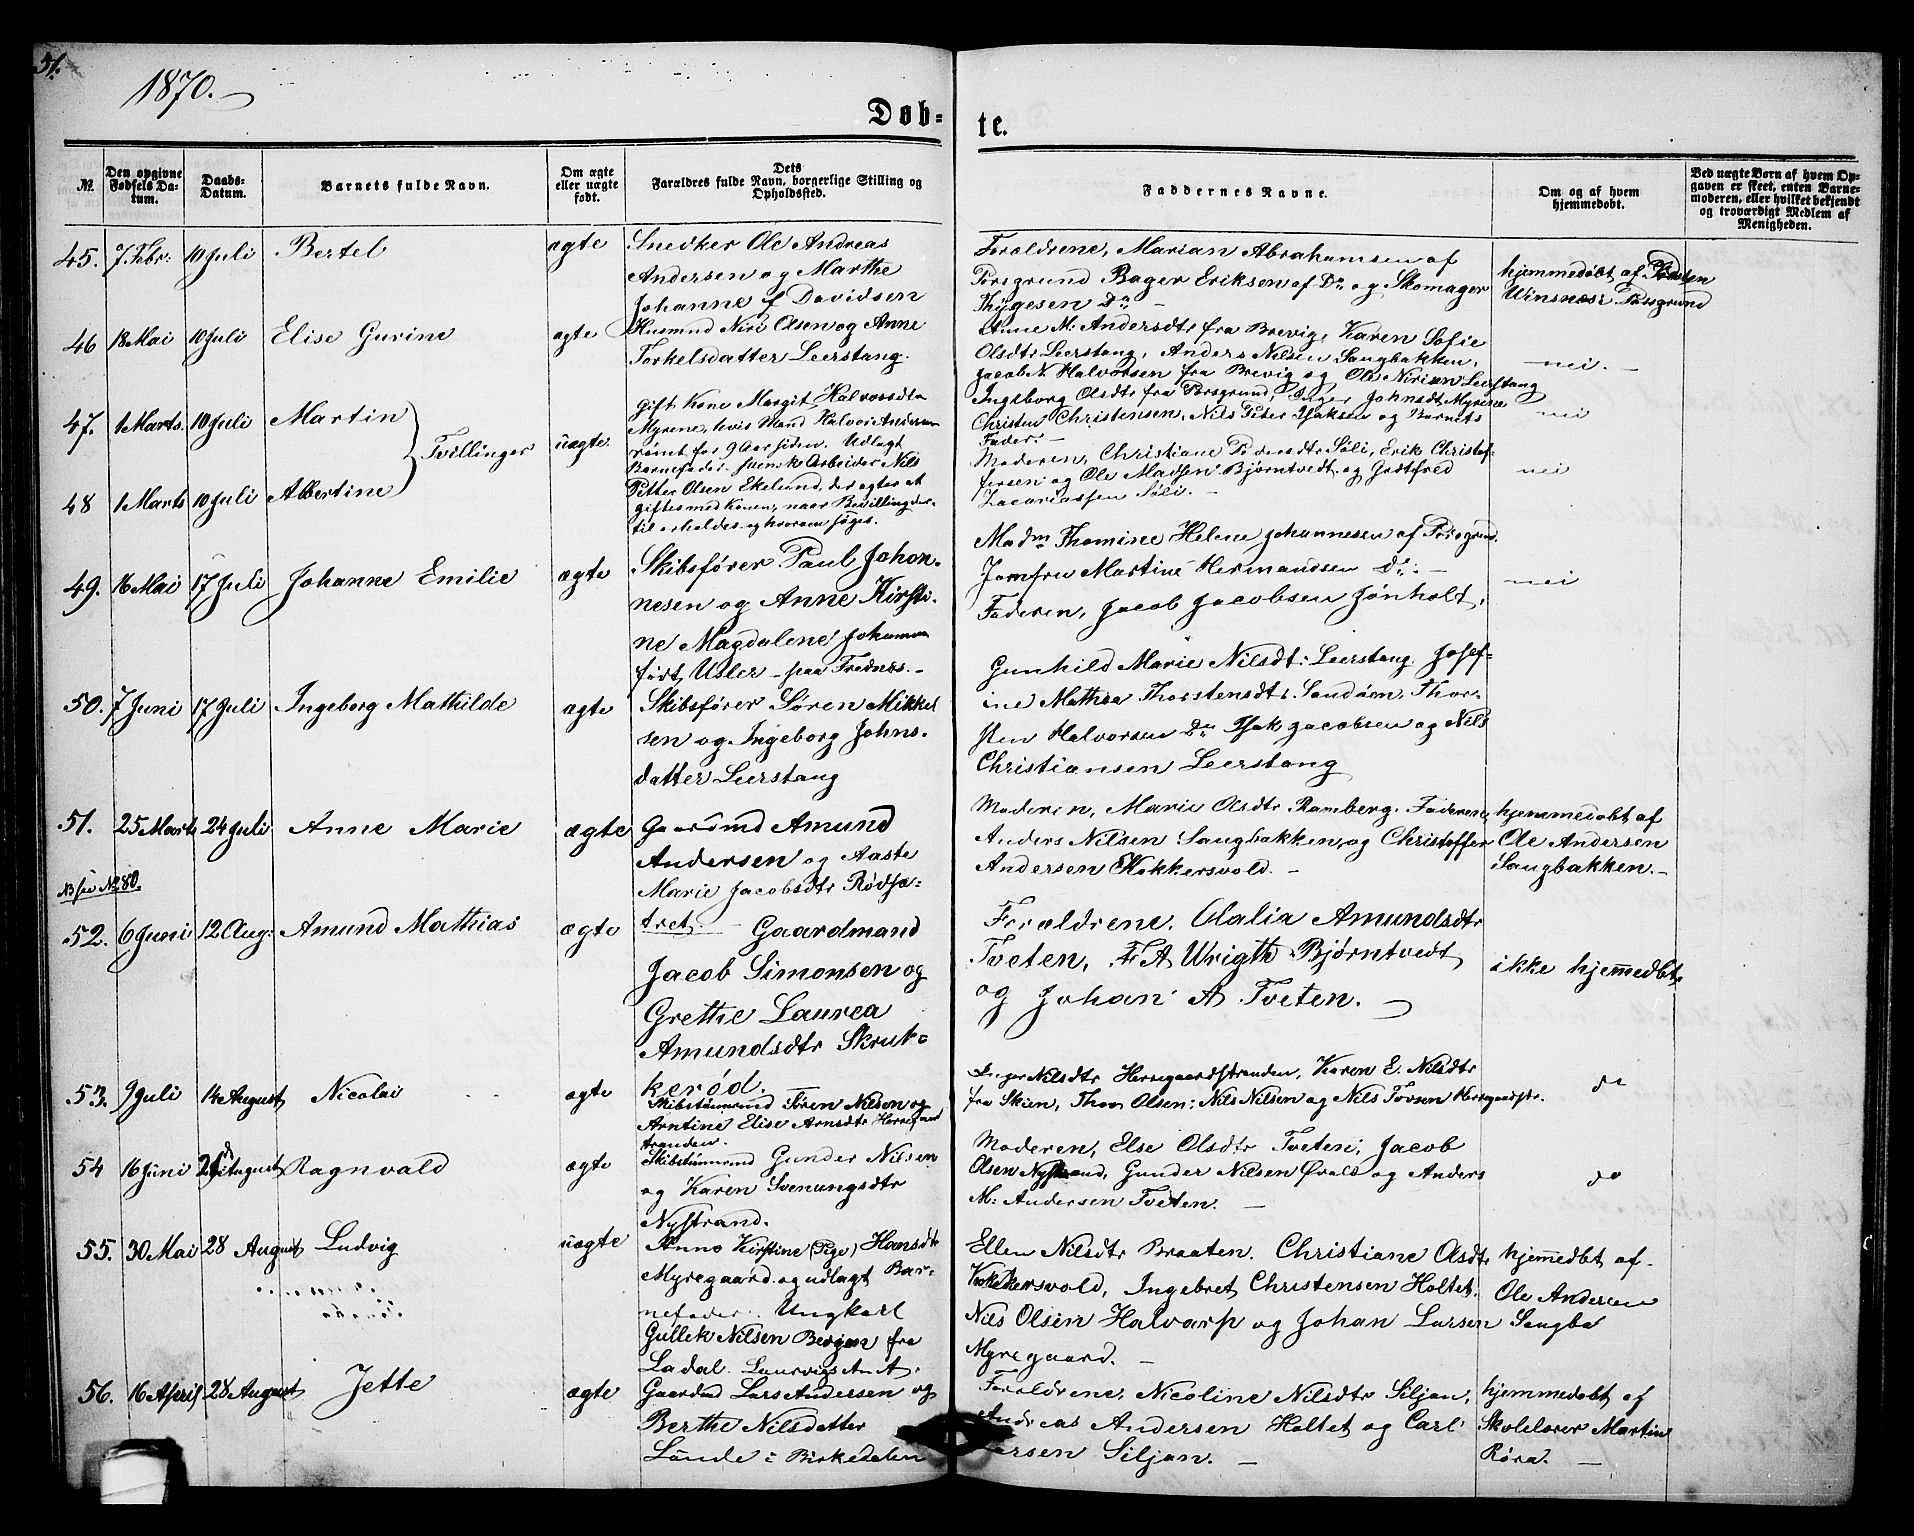 51.
1870.
Døb-
te.
No.
Den opgivne Fødsels Datum.
Daabs-Datum.
Barnets fulde Navn.
Om ægte eller uægte født.
Dets Forældres fulde Navn, borgerlige Stilling og Opholdssted.
Faddernes Navne.
Om og af hvem hjemmedøbt.
Ved uægte Børn af hvem Opgaven er skeet, enten Barnemoderen, eller hvilket bekjendt og troværdigt Medlem af Menigheden.
45. 7. Febr: 10 Juli Bertel ægte
Snedker Ole Andreas
Andersen og Marthe
Johanne f. Davidsen
Forældrene, Marian Abrahamsen af
Porsgrund Bager Eriksen af Do og Skomager
Thygesen Do. —
hjemmedøbt af
Winsnæs i Porsgrund
46 18 Mai 10 Juli Elise Gurine ægte
Husmnd Niri Olsen og Anne
Torkelsdatter Leerstang.
Anne M. Andersdtr fra Brevig, Karen Sofie
Olsdtr Leerstang, Anders Nilsen Saugbakken,
Jacob N. Halvorsen fra Brevig og Ole Nirisen Leerstang
nei. —
47. 1 Marts 10 Juli Martin
Tvillinger uægte
48 1 Marts 10 Juli Albertine
Gift Kone Margit Halvorsdtr
Myrene, hvis Mand Halvor Andersen
rømt for 9 Aar siden. Udlagt
Barnefader svensk Arbeider Nils
Petter Olsen Ekelund, der agter at
giftes med Konen, naar Bevilling der-
til erholdes og hvorom søges.
Ingeborg Olsdtr fra Porsgrund, Inger Johnsdt. Myrene
Christen Christensen, Nils Peter Isaksen og Barnets
Fader. —
nei
Moderen, Christiane Pedersdtr Søli, Erik Christof-
fersen og Ole Madsen Bjørntvedt og Gustfred
Zacariassen Søli. —
nei
49. 16 Mai 17 Juli Johanne Emilie ægte
Skibsfører Paul Johan-
nesen og Anne Kirsti-
ne Magdalene Johannesen
født Usler — paa Frednes. —
Madm Thomine Helene Johannesen af Porsgrund.
Jomfru Martine Hermandsen Do: —
Faderen, Jacob Jacobsen Jønholt,
nei
50. 7 Juni 17 Juli Ingeborg Mathilde ægte
Skibsfører Søren Mikkel
sen og Ingeborg Johns-
datter Leerstang
Gunhild Marie Nilsdt: Leerstang. Josef-
ine Mathea Thorstensdtr Sandøen, Thor-
sten Halvorsen Do Isak Jacobsen og Nils
Christiansen Leerstang
51. 25 Marts 24 Juli Anne Marie ægte
NB see No 80.
Gaardmd Amund
Andersen og Aaste
Marie Jacobsdtr Rødsæ-
tret. —
Moderen, Marie Olsdtr Ramberg. Faderen,
Anders Nilsen Saugbakken, og Christoffer
Andersen Kokkersvold. —
hjemmedøbt af
Ole Andersen
Saugbakken. —
52. 6 Juni 12 Aug: Amund Mathias ægte
Gaardmand
Jacob Simonsen og
Grethe Laurea
Amundsdtr Skruk-
kerød.
Forældrene. Olalia Amundsdtr
Tveten, F A Wrigth Bjørntvedt
og Johan A Tveten. —
ikke hjemmedbt.
53. 9 Juli 14 August Nicolai ægte
Skibstømrmd Søren Nilsen og
Arntine Elise Arnsdtr Herregaard
stranden.
Inger Nilsdtr Herregaardstranden, Karen E. Nilsdtr
fra Skien, Thom Olsen; Nils Nilsen og Nils Tovsen Herregaardstr.
do
54 16 Juni 21 August Ragnvald ægte
Skibstømrmd Gunder Nilsen
og Karen Svenungsdtr
Nystrand.
Moderen, Else Olsdtr Tveten, Jacob
Olsen Nystrand, Gunder Nilsen Øvald og Anders
M: Andersen Tveten. —
do
55. 30 Mai 28 August Ludvig uægte
Anne Kirstine (Pige) Hansdtr
Myregaard og udlagt Bar-
nefader. Ungkarl
Gullek Nilsen Bergan fra
Ladal. Laurvigs A A.
Ellen Nilsdtr Braaten. Christiane Olsdtr
Kokkersvold, Ingebret Christensen Holtet,
Nils Olsen Halvarp og Johan Larsen
Myregaard. —
hjemmedbt af
Ole Andersen
Saugba
56. 16 April 28 August Jette ægte
Gaardmd Lars Andersen og
Berthe Nilsdatter
Lunde i Birkedalen
Forældrene, Nicoline Nilsdtr Siljan,
Andreas Andersen Holtet og Carl
Larsen Siljan. —
hjemmedøbt af
Skolelærer Martin
Røra. —